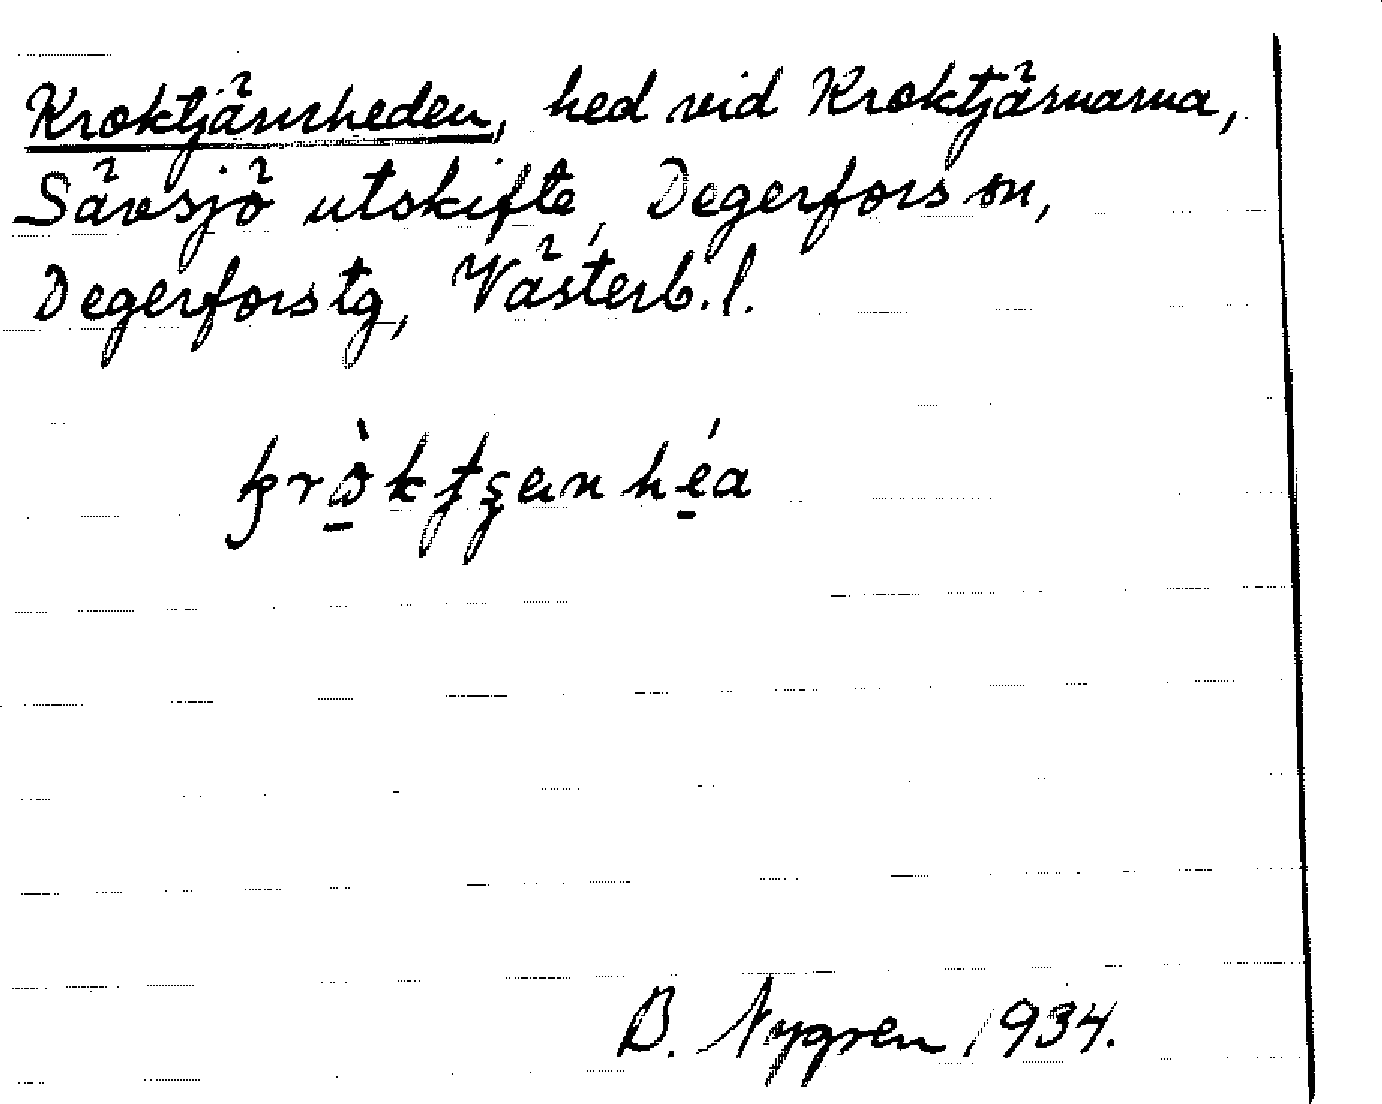 Kroktjärnheden, hed vid Kroktjärnarna,
Sävsjö utskifte, Degerfors sn,
Degerfors tg, Västerb. l.
B. Nygren 1934.